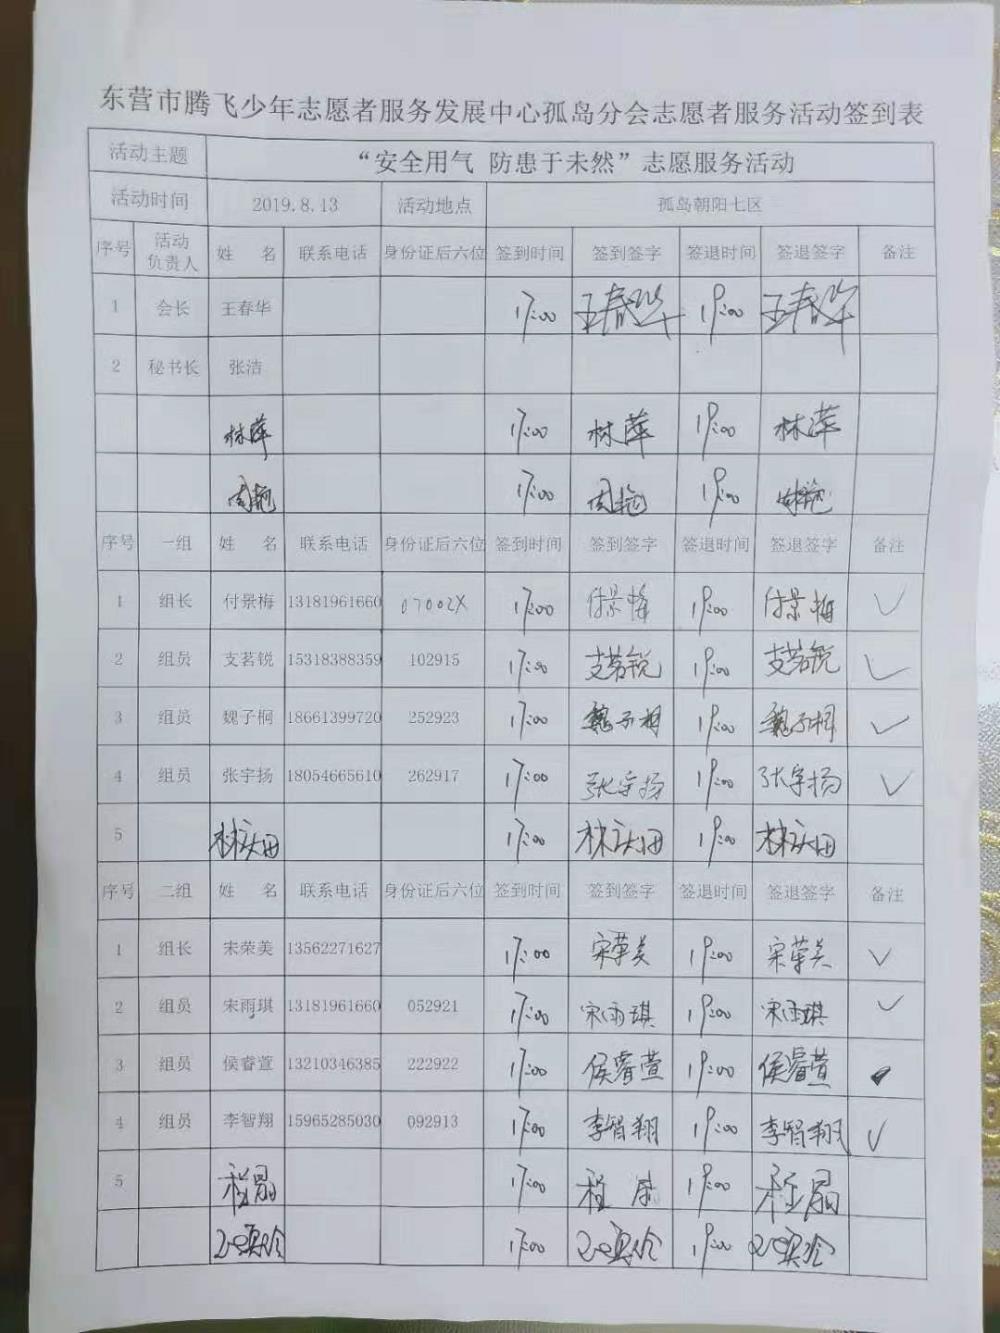 东营市腾飞少年志愿者服务发展中心孤岛分会志愿者服务活动签到表
活动主题 “安全用气 防患于未然”志愿服务活动
活动时间 2019.8.13 活动地点 孤岛朝阳七区
序号 活动负责人 姓 名 联系电话 身份证后六位 签到时间 签到签字 签退时间 签退签字 备注
1 会长 王春华 17:00 王春华 19:00 王春华
2 秘书长 张浩
林萍 17:00 林萍 19:00 林萍
周艳 17:00 周艳 19:00 周艳
序号 一组 姓 名 联系电话 身份证后六位 签到时间 签到签字 签退时间 签退签字 备注
1 组长 付景梅 13181961660 07002X 17:00 付景梅 19:00 付景梅 ✓
2 组员 支茗锐 15318388359 102915 17:00 支茗锐 19:00 支茗锐 ✓
3 组员 魏子桐 18661399720 252923 17:00 魏子桐 19:00 魏子桐 ✓
4 组员 张宇扬 18054665610 262917 17:00 张宇扬 19:00 张宇扬 ✓
5 17:00 19:00
序号 二组 姓 名 联系电话 身份证后六位 签到时间 签到签字 签退时间 签退签字 备注
1 组长 宋荣美 13562271627 17:00 宋荣美 19:00 宋荣美 ✓
2 组员 宋雨琪 13181961660 052921 17:00 宋雨琪 19:00 宋雨琪 ✓
3 组员 侯睿萱 13210346385 222922 17:00 侯睿萱 19:00 侯睿萱
4 组员 李智翔 15965285030 092913 17:00 李智翔 19:00 李智翔 ✓
5 17:00 19:00
17:00 19:00